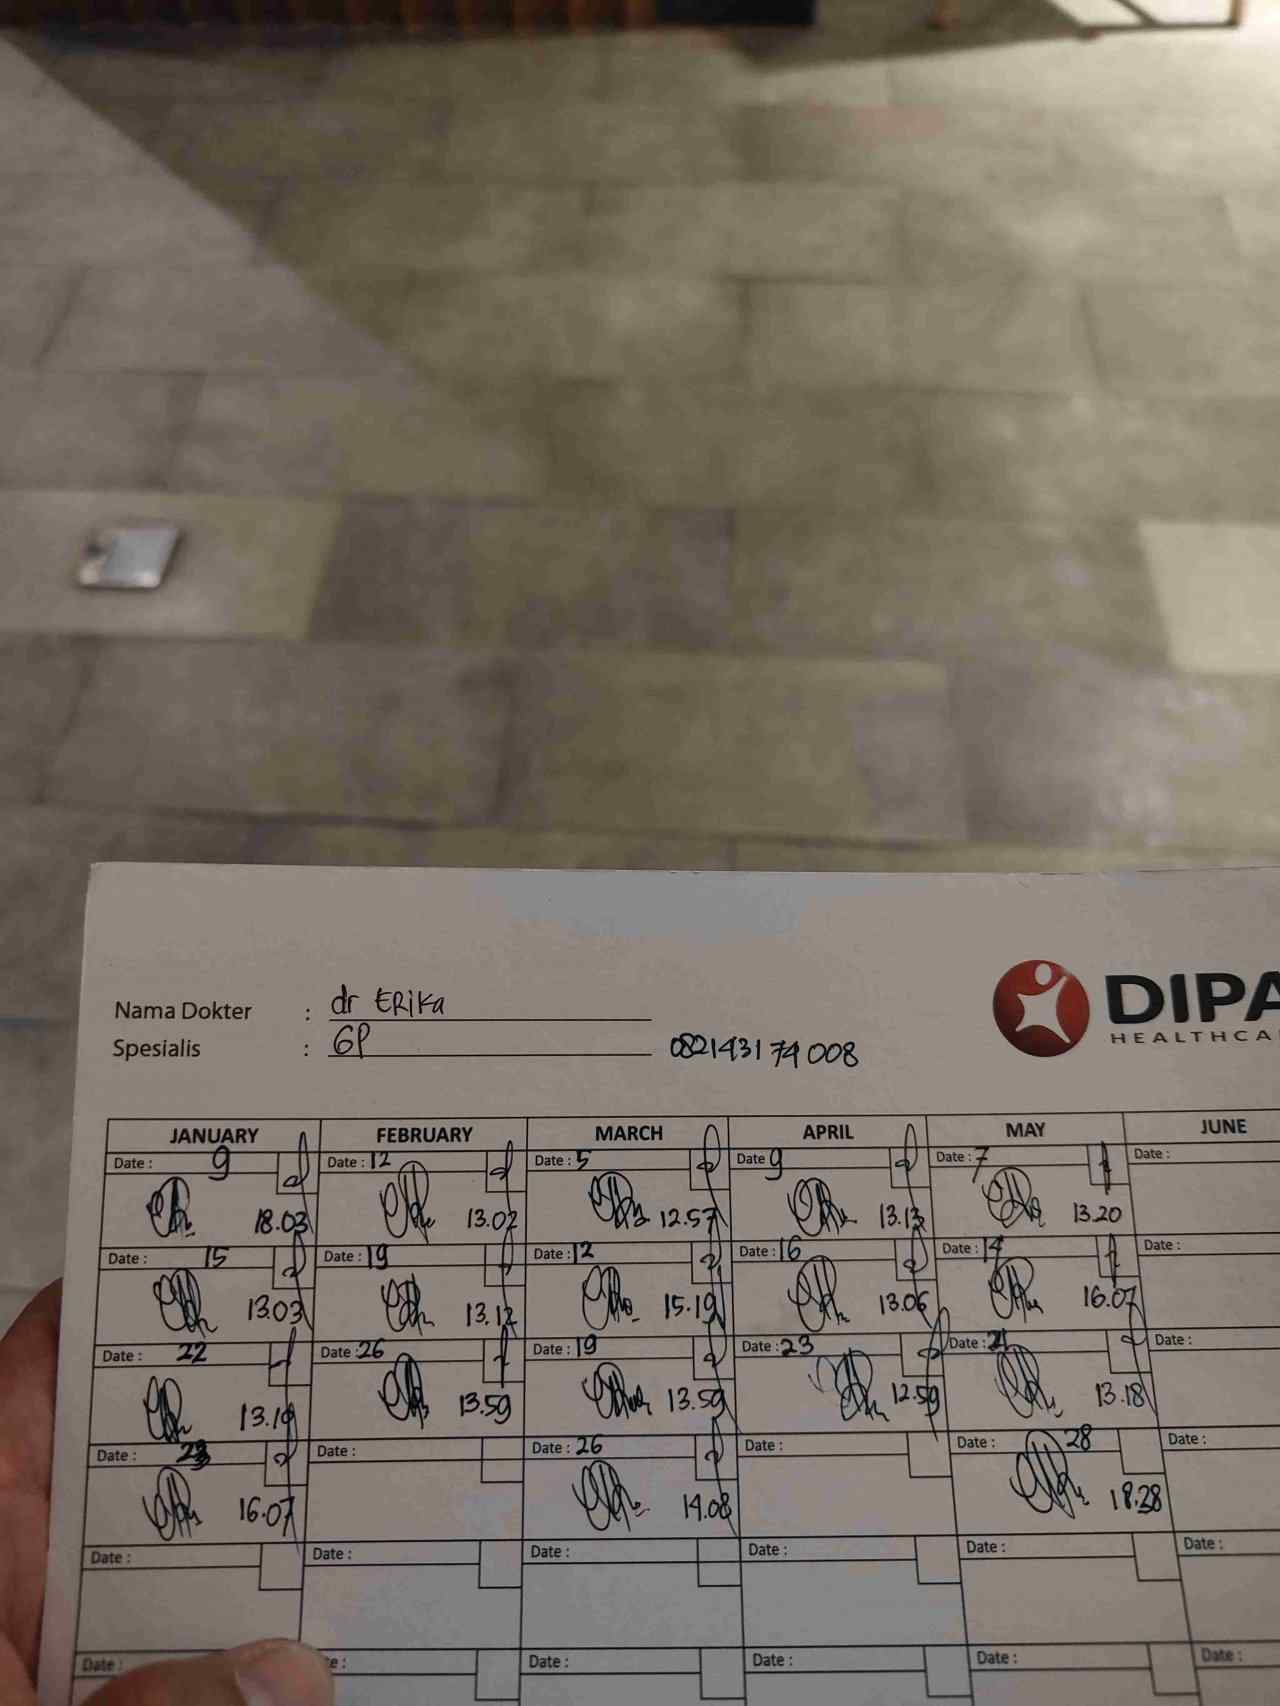 Nama Dokter : dr ERika
Spesialis : GP 082143174008
DIPA
HEALTHCA
JANUARY FEBRUARY MARCH APRIL MAY JUNE
Date : 9 Date : 12 Date : 5 Date 9 Date : 7 Date :
18.03 13.02 12.57 13.13 13.20
Date : 15 Date : 19 Date : 12 Date : 16 Date : 14 Date :
13.03 13.12 15.19 13.06 16.07
Date : 22 Date : 26 Date : 19 Date : 23 Date : 21 Date :
13.19 13.59 13.59 12.59 13.18
Date : 23 Date : Date : 26 Date : Date : 28 Date :
16.07 14.08 18.28
Date : Date : Date : Date : Date : Date :
Date : e : Date : Date : Date : Date :